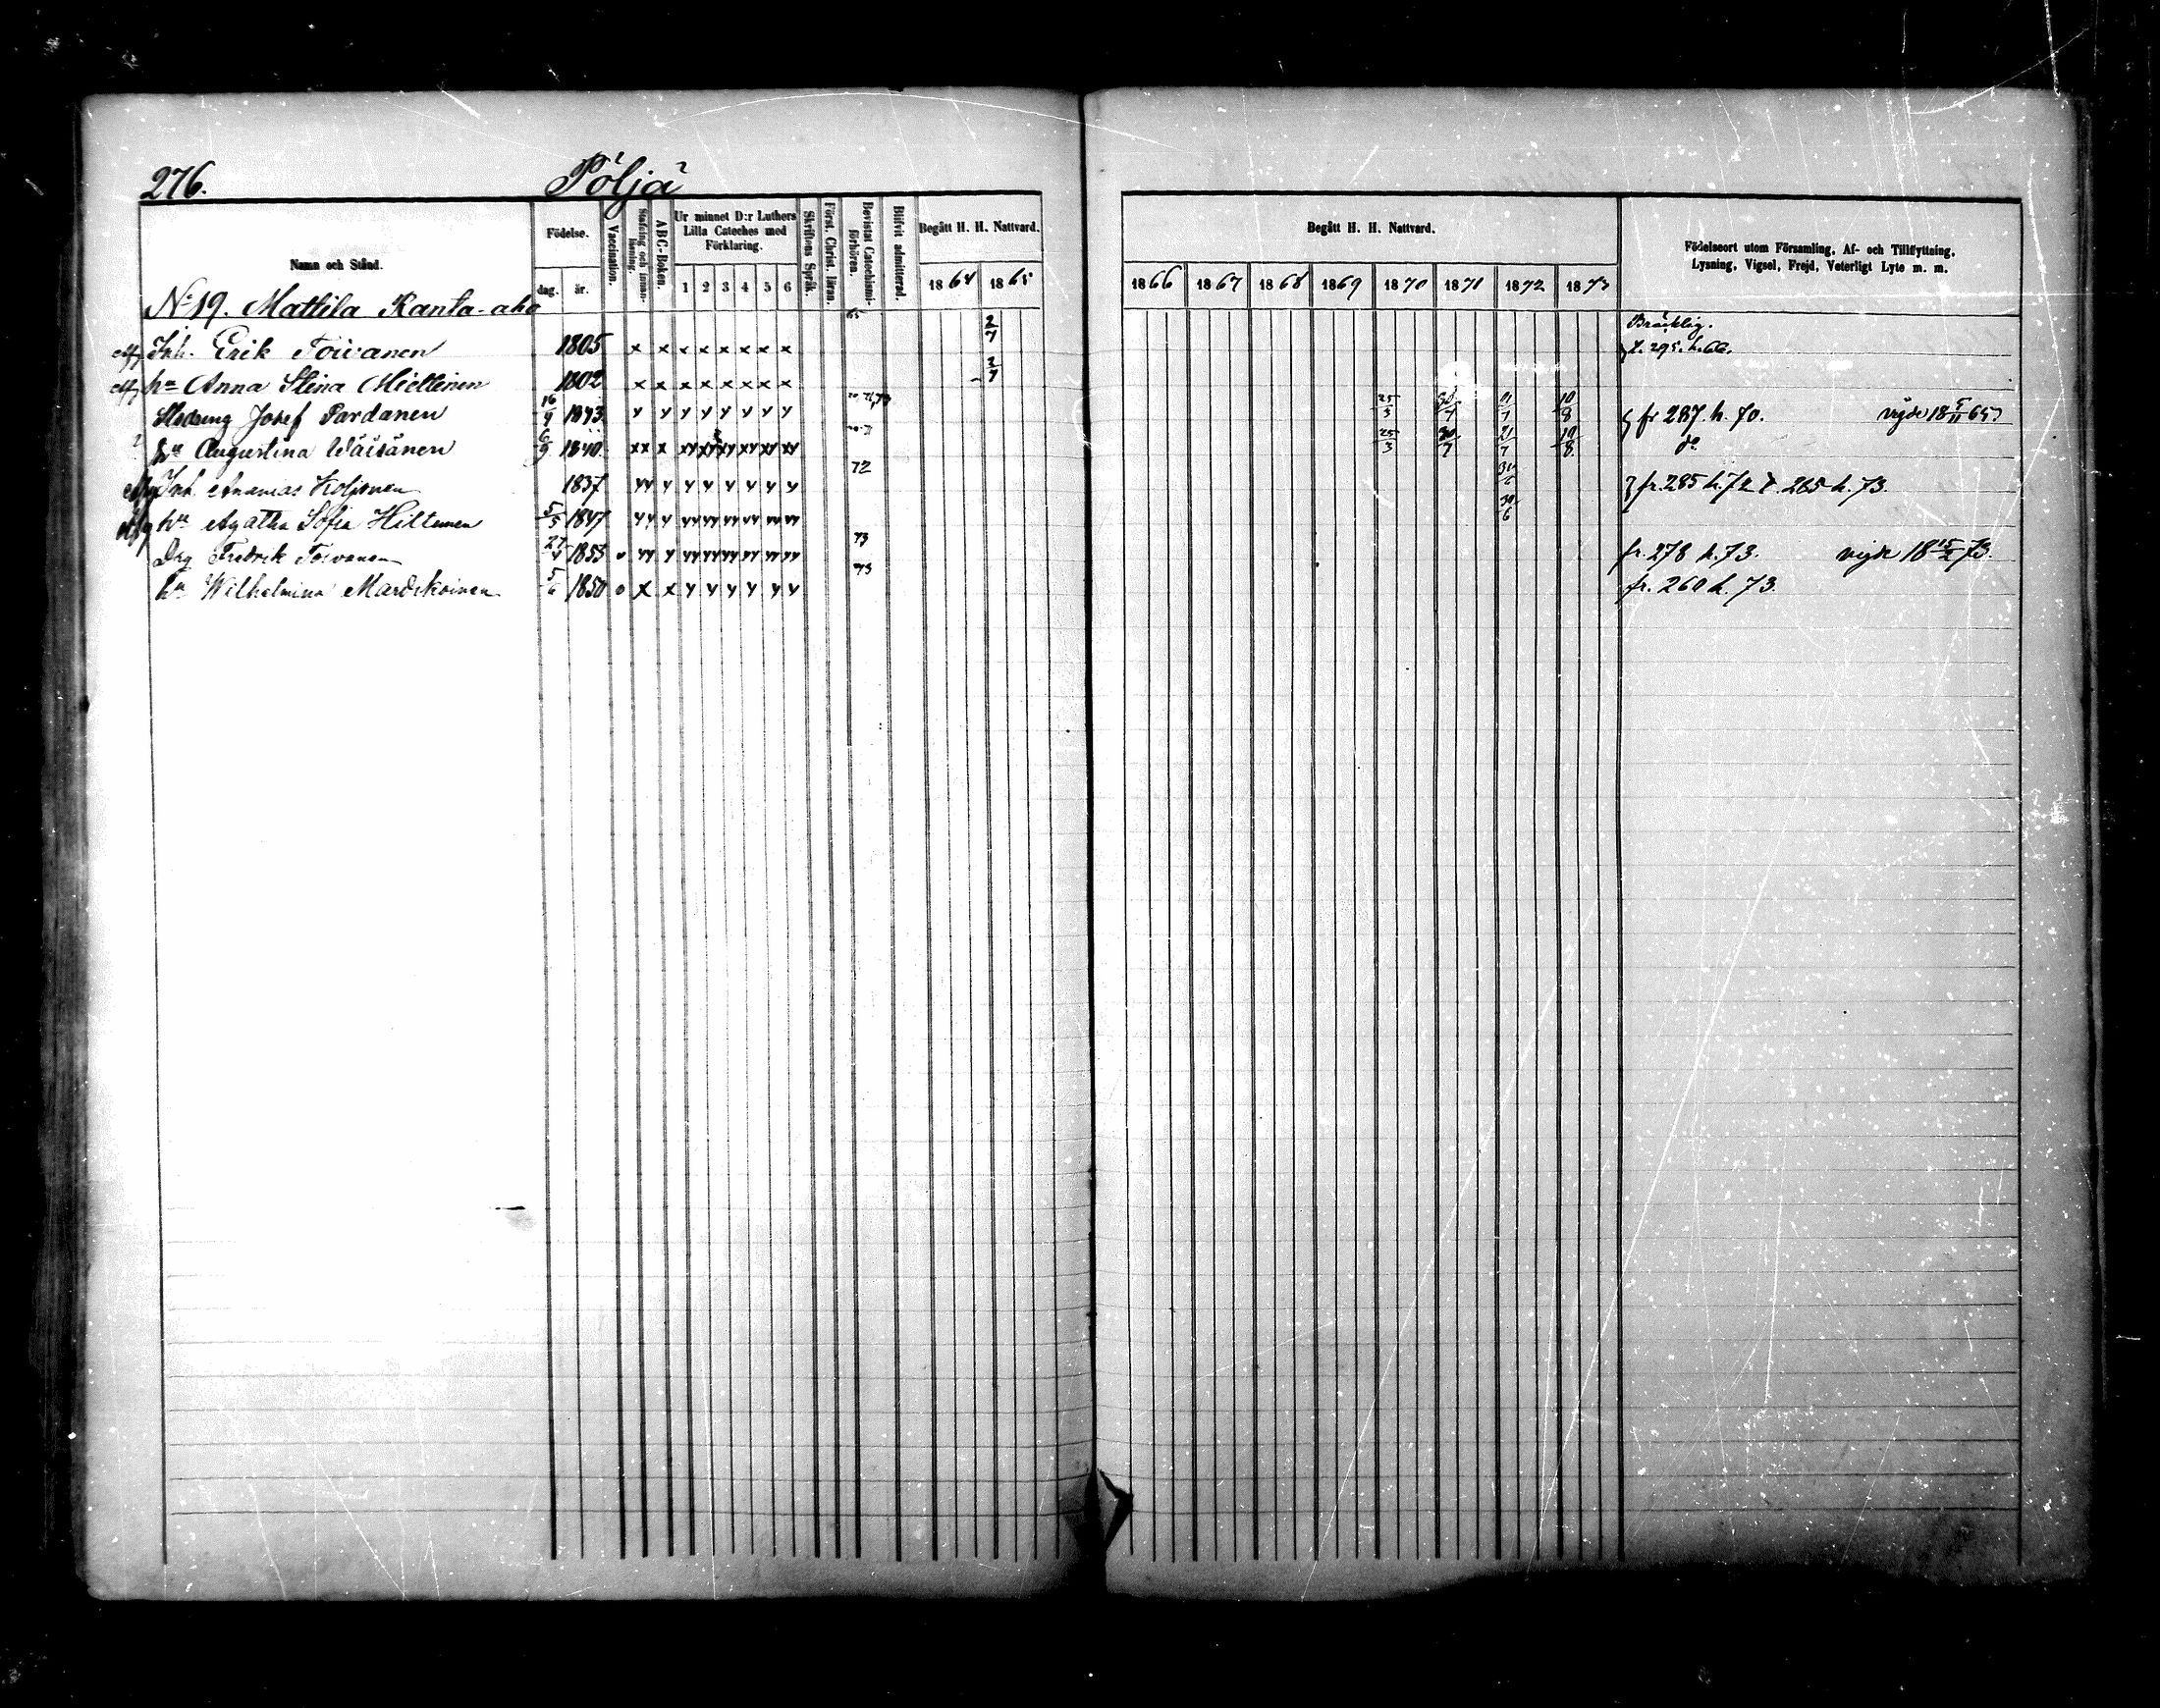 276.
Pöljä
Namn och Stånd.
Födelse.
dag. år.
Vaccination.
Stafning och innanläsning.
ABC-Boken.
Ur minnet D:r Luthers Lilla Cateches med Förklaring.
1 2 3 4 5 6
Skriftens Språk.
Först. Christ. läran.
Bevistat Catechismiförhören.
Blifvit admitterad.
Begått H. H. Nattvard.
1864 1865
Begått H. H. Nattvard.
1866 1867 1868 1869 1870 1871 1872 1873
Födelseort utom Församling, Af- och Tillflyttning,
Lysning, Vigsel, Frejd, Veterligt Lyte m. m.
No 19. Mattila Kanta-aho
65
Inh. Erik Toivanen 1805 x x x x x x x x 2/7 Bräcklig. t. 295. h. 66.
hu Anna Stina Miettinen 1802 x x x x x x x x 2/7
Josef Pardanen 16/9 1843 y y y y y y y y 25/3 10/8 fr 287. h. 70. vigde 18 5/11 65
hu Augustina Wäisänen 6/9 1840 xx x xy xy xy xy xy xy 25/3 30/7 21/7 10/8 do
Inh. Ananias Koljonen 1837 yy y y y y y y y 72 fr. 285 h. 72 t. 265 h. 73.
hu Agatha Sofia Hiltunen 5/5 1847 yy y yy yy yy yy yy yy 30/6
Drg Fredrik Toivanen 1853 yy y yy yy yy yy yy yy 73 fr. 278 h. 73. vigde 18 15/2 73.
hu Wilhelmina Mardikainen 5/6 1850 o x x y y y y y y 73 fr. 260 h. 73.